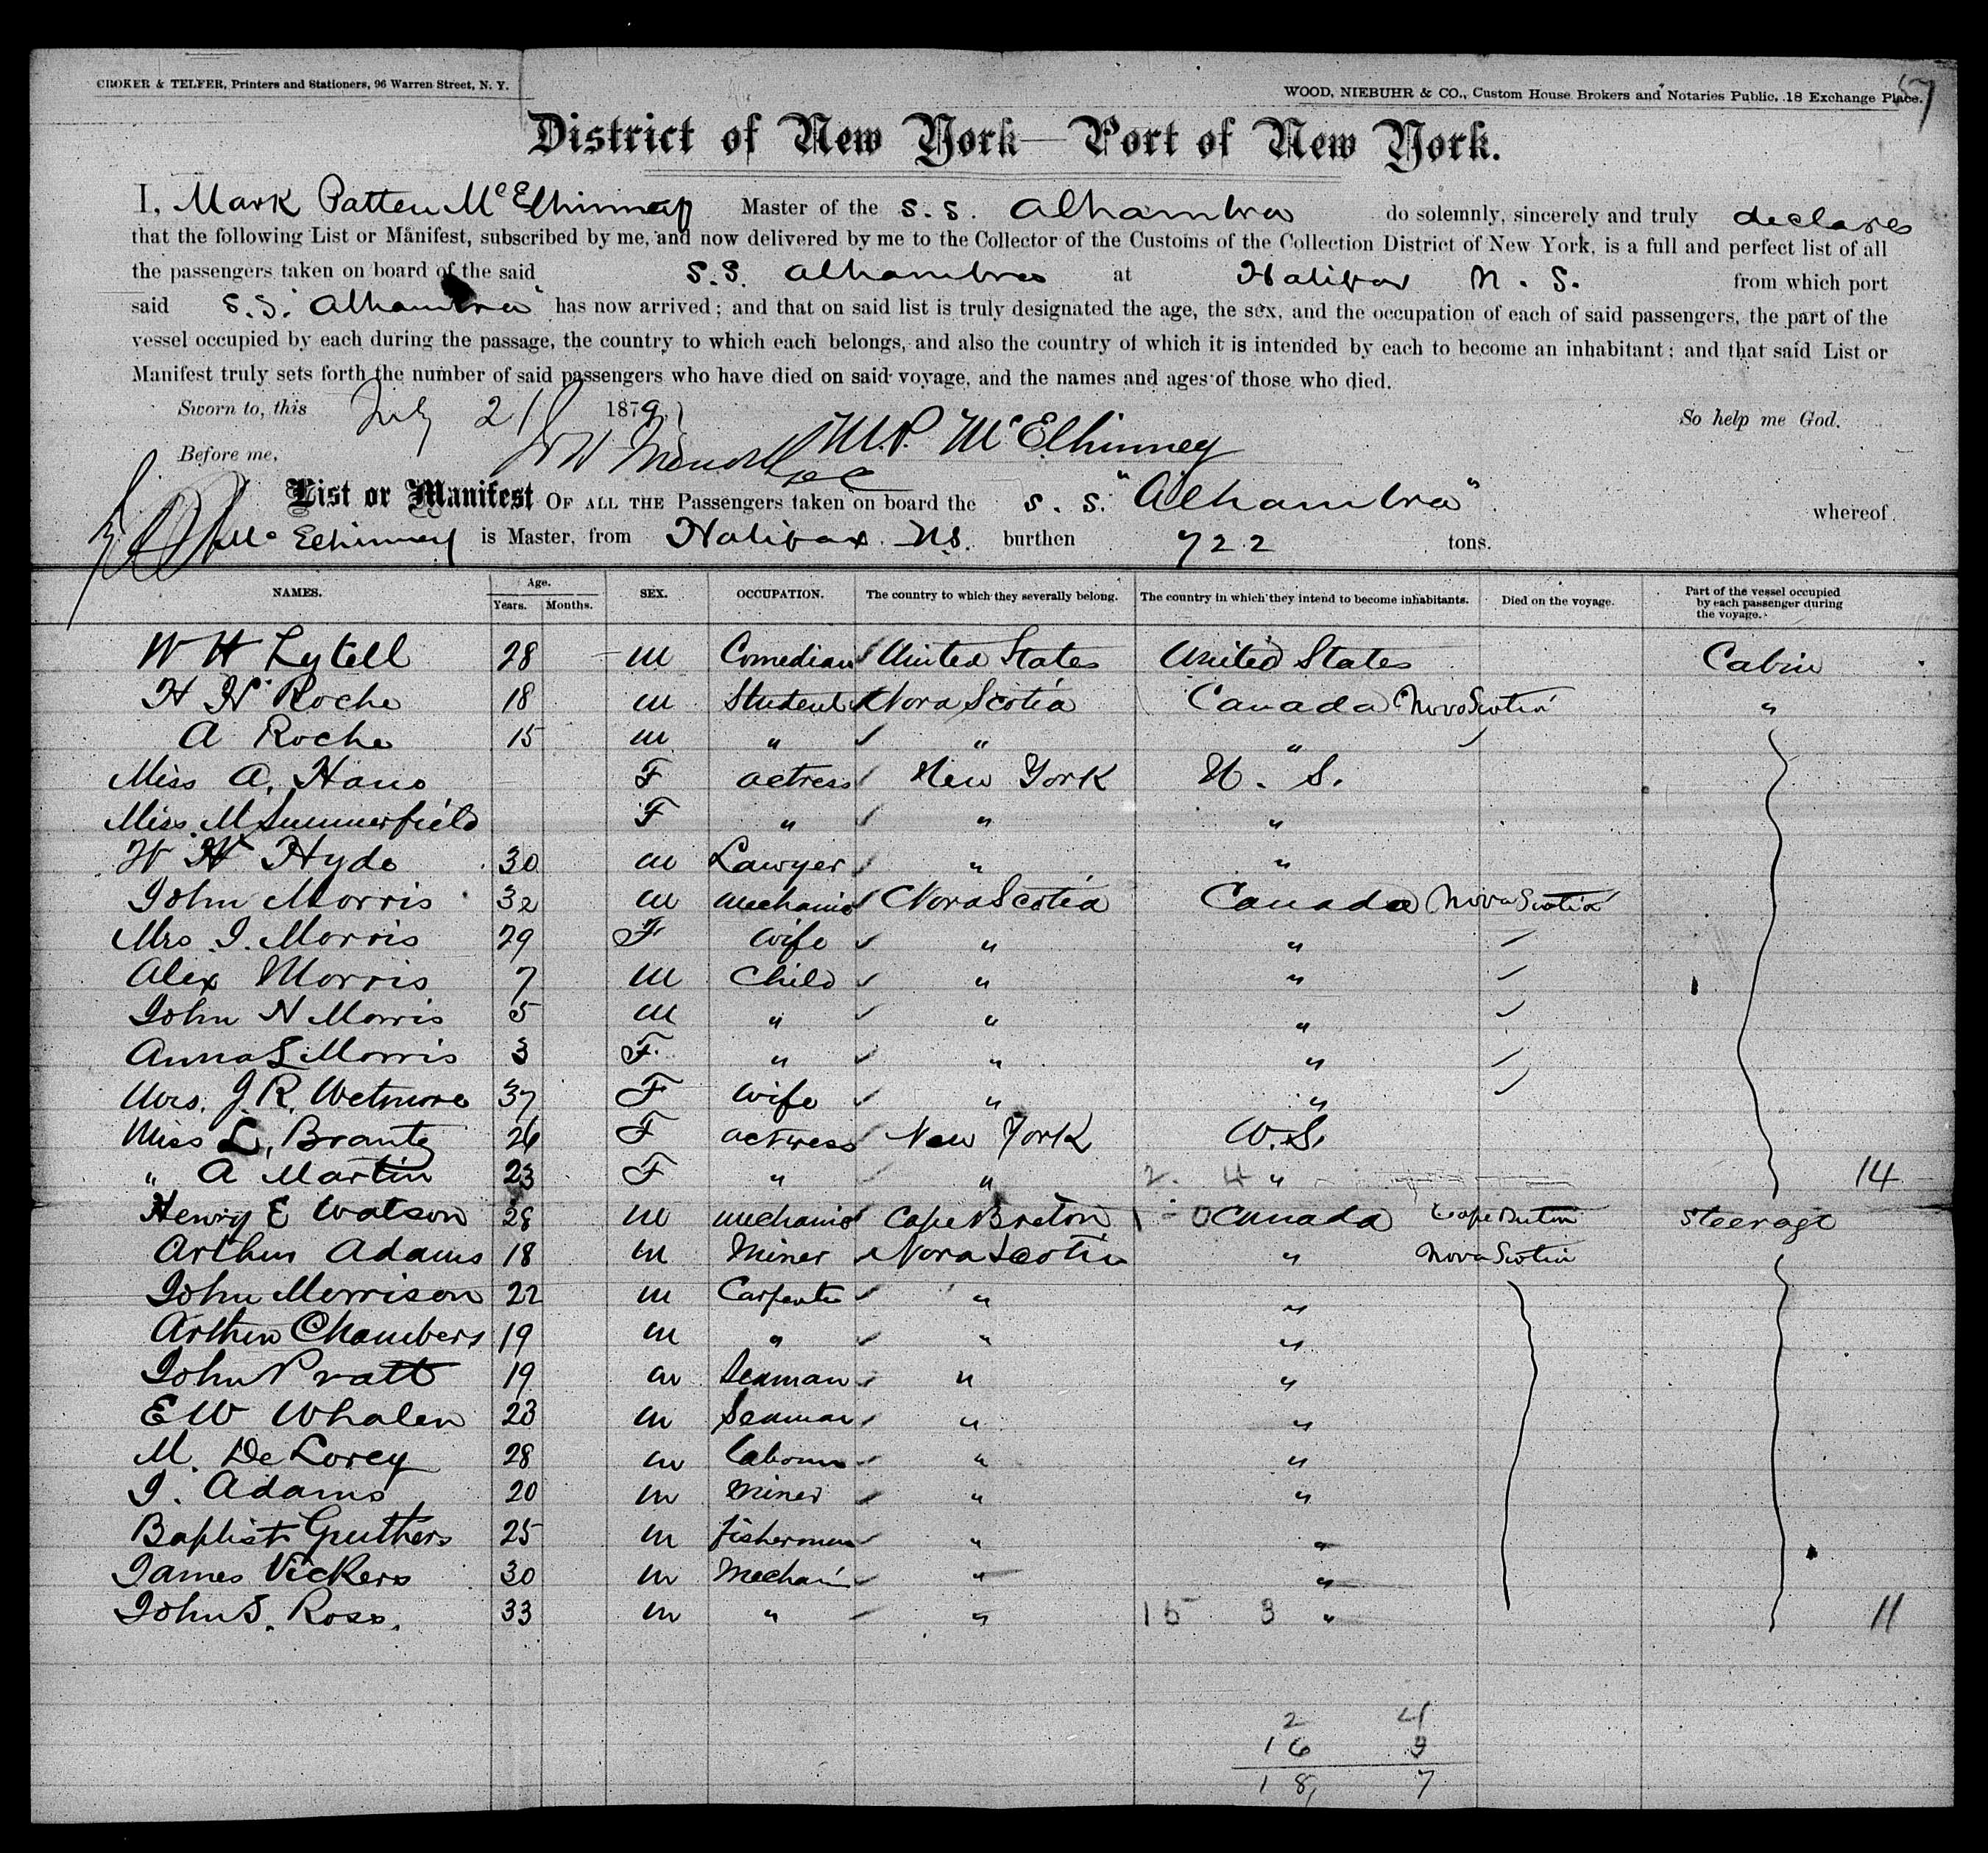 CROKER & TELFER, Printers and Stationers, 96 Warren Street, N. Y.
WOOD, NIEBUHR & CO., Custom House Brokers and Notaries Public, 18 Exchange Place.
57
District of New York—Port of New York.
I, Mark Patten McElhinney Master of the S.S. Alhambra do solemnly, sincerely and truly declares
that the following List or Manifest, subscribed by me, and now delivered by me to the Collector of the Customs of the Collection District of New York, is a full and perfect list of all
the passengers taken on board of the said S.S. Alhambra at Halifax N.S. from which port
said S.S. "Alhambra" has now arrived; and that on said list is truly designated the age, the sex, and the occupation of each of said passengers, the part of the
vessel occupied by each during the passage, the country to which each belongs, and also the country of which it is intended by each to become an inhabitant; and that said List or
Manifest truly sets forth the number of said passengers who have died on said voyage, and the names and ages of those who died.
Sworn to, this July 21 1879, So help me God.
Before me, M.P. McElhinney
List or Manifest OF ALL THE Passengers taken on board the S.S. "Alhambra" whereof
McElhinney is Master, from Halifax N.S. burthen 722 tons.
NAMES. Age. Years. Months. SEX. OCCUPATION. The country to which they severally belong. The country in which they intend to become inhabitants. Died on the voyage. Part of the vessel occupied by each passenger during the voyage.
W H Lytell 28 M Comedian United States United States Cabin
H W Roche 18 M Student Nova Scotia Canada Nova Scotia "
A Roche 15 M " " "
Miss A. Hans F actress New York U. S.
Miss M Summerfield F " " "
W H Hyde 30 M Lawyer " "
John Morris 32 M mechanic Nova Scotia Canada Nova Scotia
Mrs J. Morris 29 F wife " "
Alex Morris 7 M Child " "
John N Morris 5 M " " "
Anna L Morris 3 F " " "
Mrs. J. R. Wetmore 37 F wife " "
Miss L. Brantz 26 F actress New York U.S.
" A Martin 23 F " " 2 4 " 14
Henry E Watson 28 M mechanic Cape Breton Canada Cape Breton Steerage
Arthur Adams 18 M Miner Nova Scotia " Nova Scotia
John Morrison 22 M Carpenter " "
Arthur Chambers 19 M " " "
John Pratt 19 M Seaman " "
E W Whalen 23 M Seaman " "
M. DeLorey 28 M Labourer " "
J. Adams 20 M Miner " "
Baptist Gruthers 25 M fisherman " "
James Vickers 30 M Mechanic " "
John S. Ross. 33 M " " 15 3 " 11
2 4
16 3
18, 7